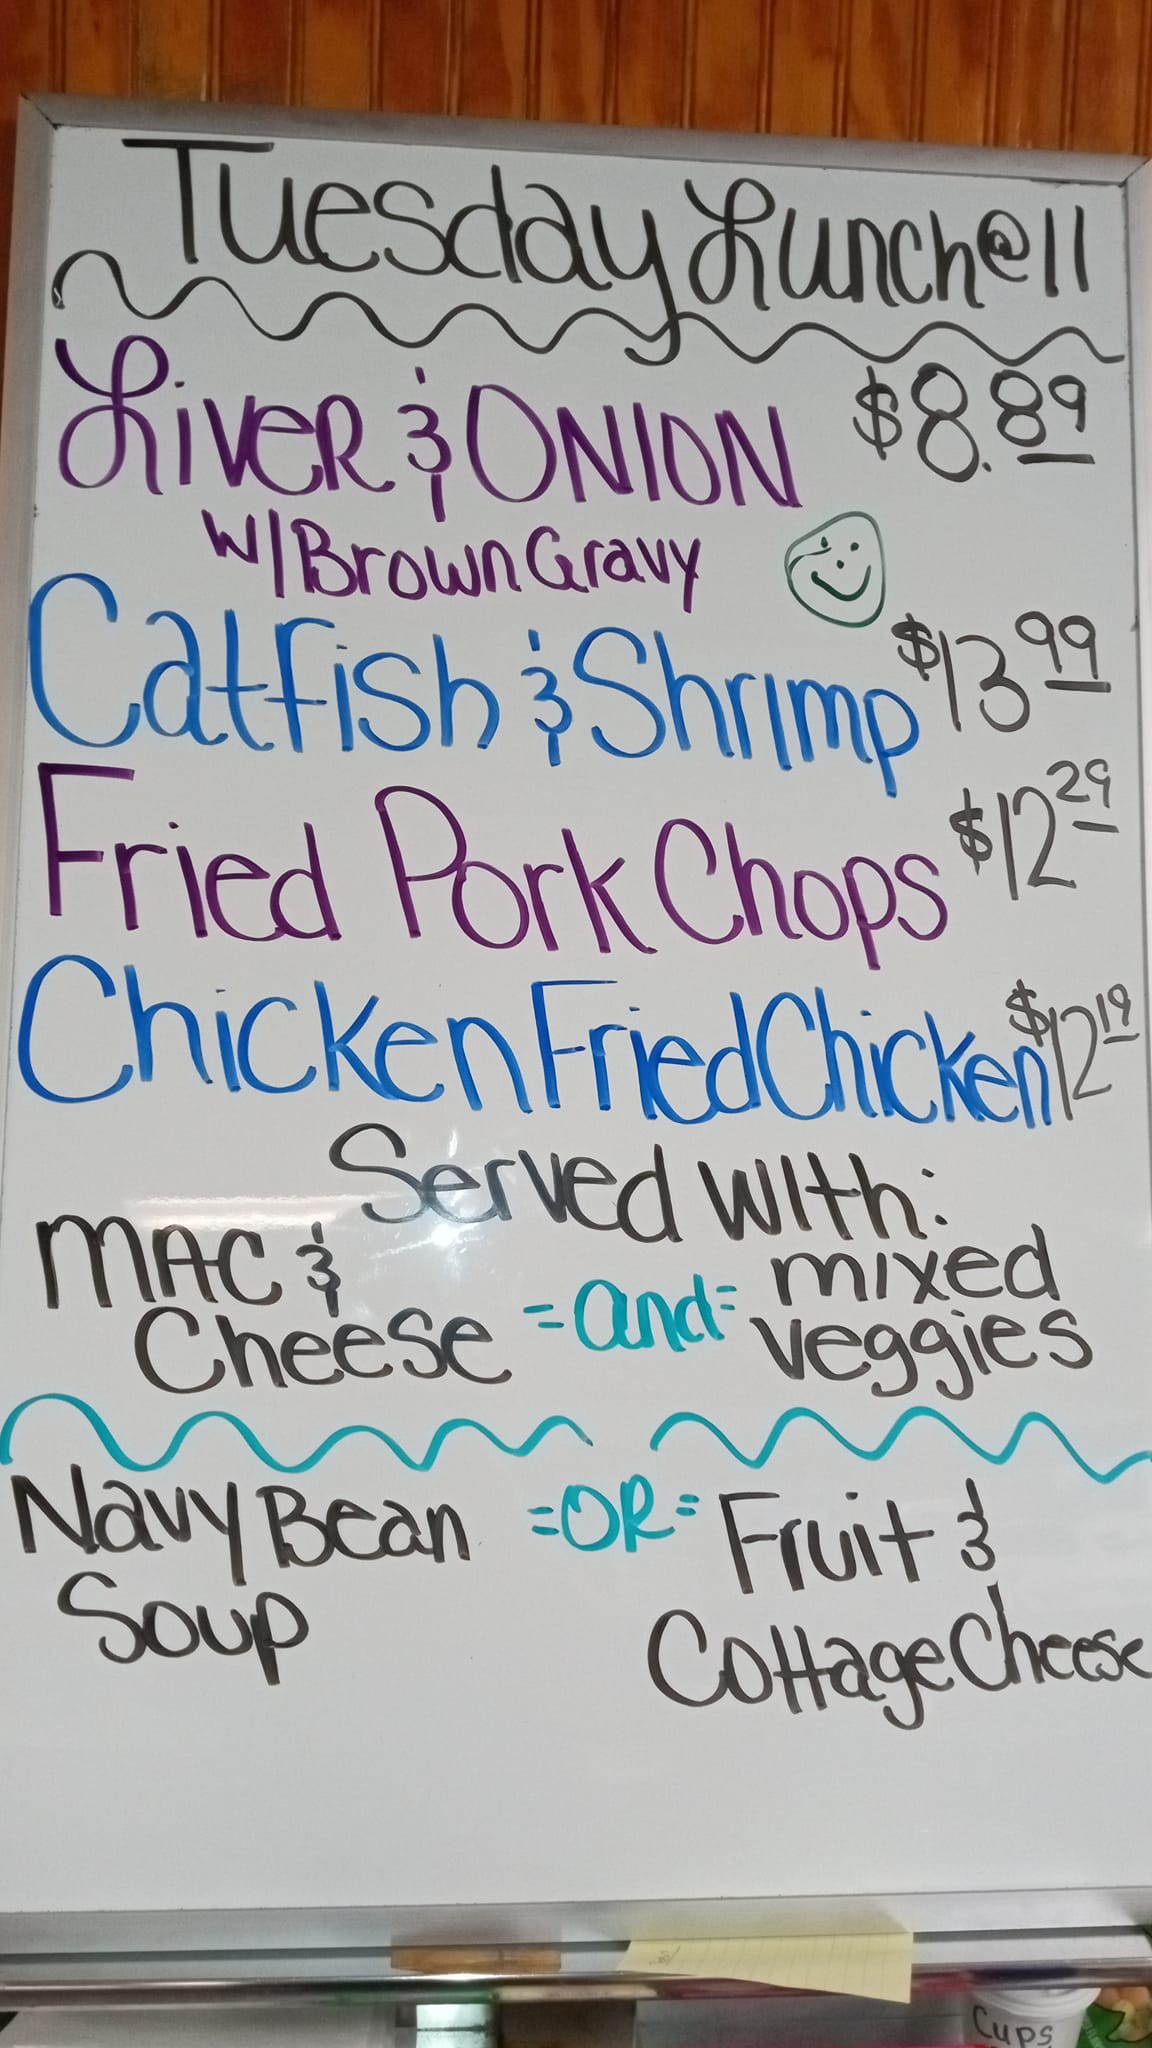 Tuesday Lunch@11
Liver & ONION $8.89
W/Brown Gravy
Catfish & Shrimp $13.99
Fried Pork Chops $12.29
Chicken Fried Chicken $12.19
Served with:
MAC & Cheese =and= mixed veggies
Navy Bean Soup =OR= Fruit & Cottage Cheese
Cups